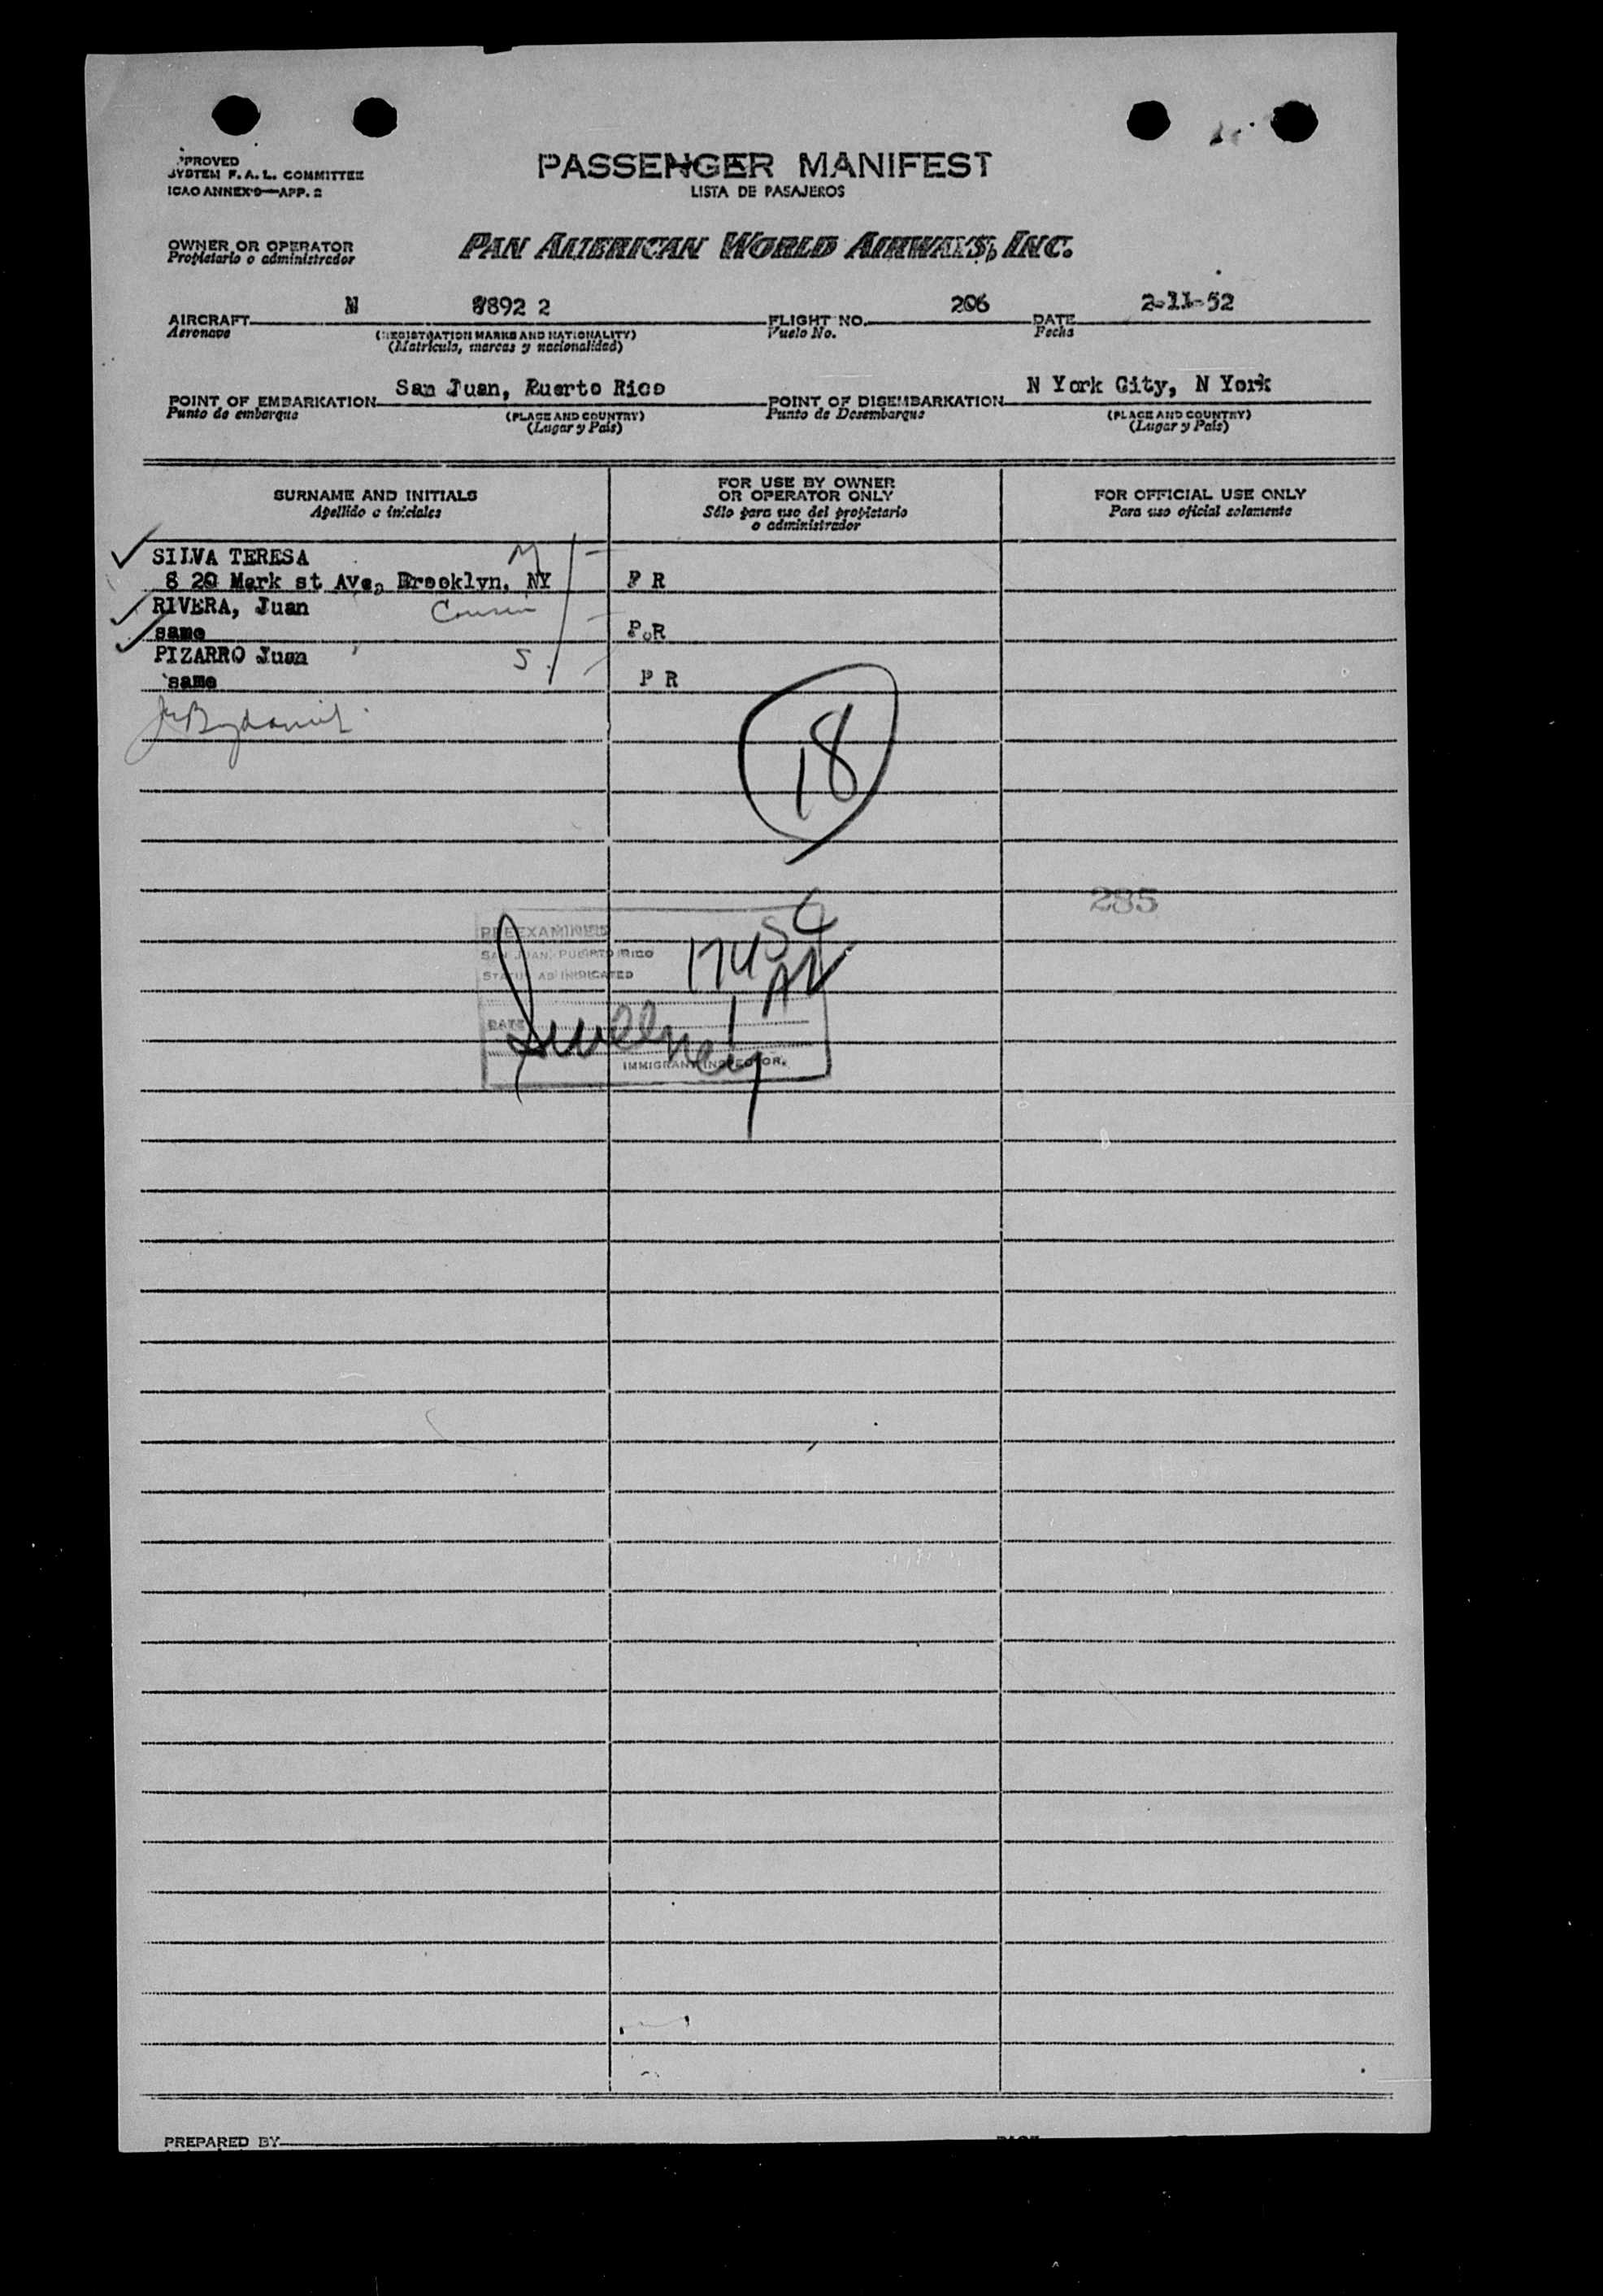 PASSENGER MANIFEST
LISTA DE PASAJEROS
PROVED
SYSTEM F. A. L. COMMITTEE
ICAO ANNEX 9—APP. 2
OWNER OR OPERATOR
Propietario o administrador
PAN AMERICAN WORLD AIRWAYS, INC.
AIRCRAFT N 8892 2 FLIGHT NO. 206 DATE 2-11-52
Aeronave (REGISTRATION MARKS AND NATIONALITY) Vuelo No. Fecha
(Matrícula, marcas y nacionalidad)
POINT OF EMBARKATION San Juan, Puerto Rico POINT OF DISEMBARKATION N York City, N York
Punto de embarque (PLACE AND COUNTRY) Punto de Desembarque (PLACE AND COUNTRY)
(Lugar y País) (Lugar y País)
SURNAME AND INITIALS
Apellido e iniciales
FOR USE BY OWNER
OR OPERATOR ONLY
Sólo para uso del propietario
o administrador
FOR OFFICIAL USE ONLY
Para uso oficial solamente
SILVA TERESA M
8 20 Mark st Ave, Brooklyn, NY P R
RIVERA, Juan Cousin
same P.R
PIZARRO Juan S
same P R
18
285
PREEXAMINED
SAN JUAN, PUERTO RICO
STATUS AS INDICATED
17 USC
DATE
IMMIGRANT INSPECTOR.
PREPARED BY
PAGE